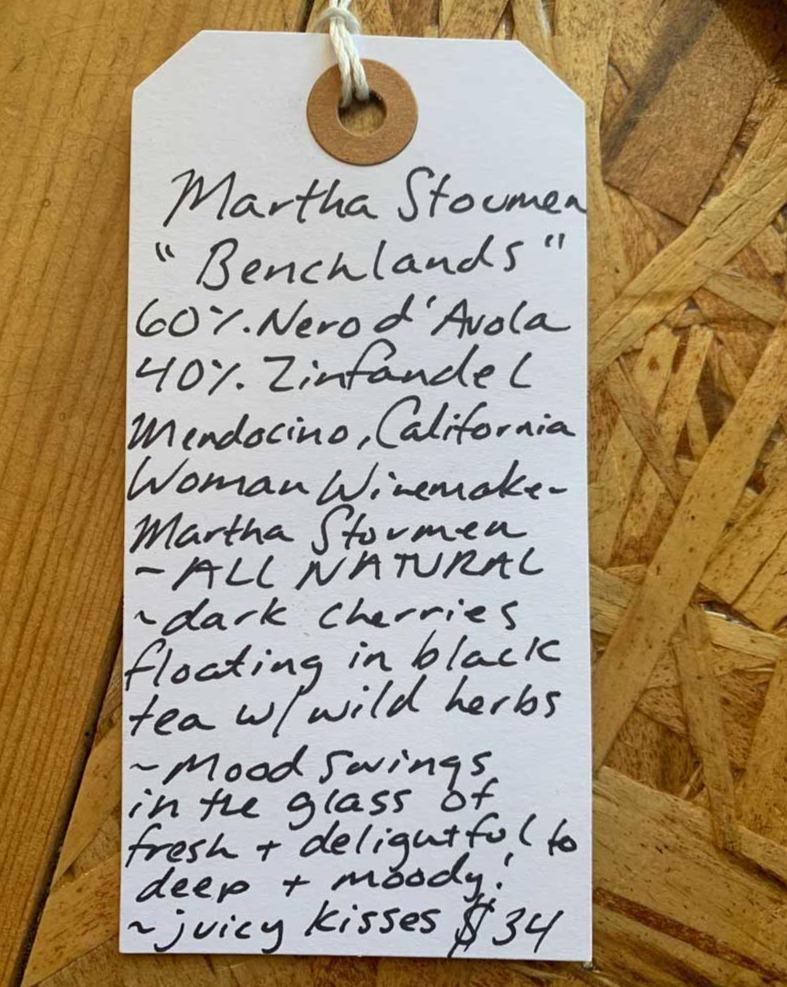 Martha Stoumen
"Benchlands"
60% Nero d'Avola
40% Zinfandel
Mendocino, California
Woman Winemaker
Martha Stoumen
- ALL NATURAL
~dark cherries
floating in black
tea w/ wild herbs
~Mood swings
in the glass of
fresh + delightful to
deep + moody!
~juicy kisses $34